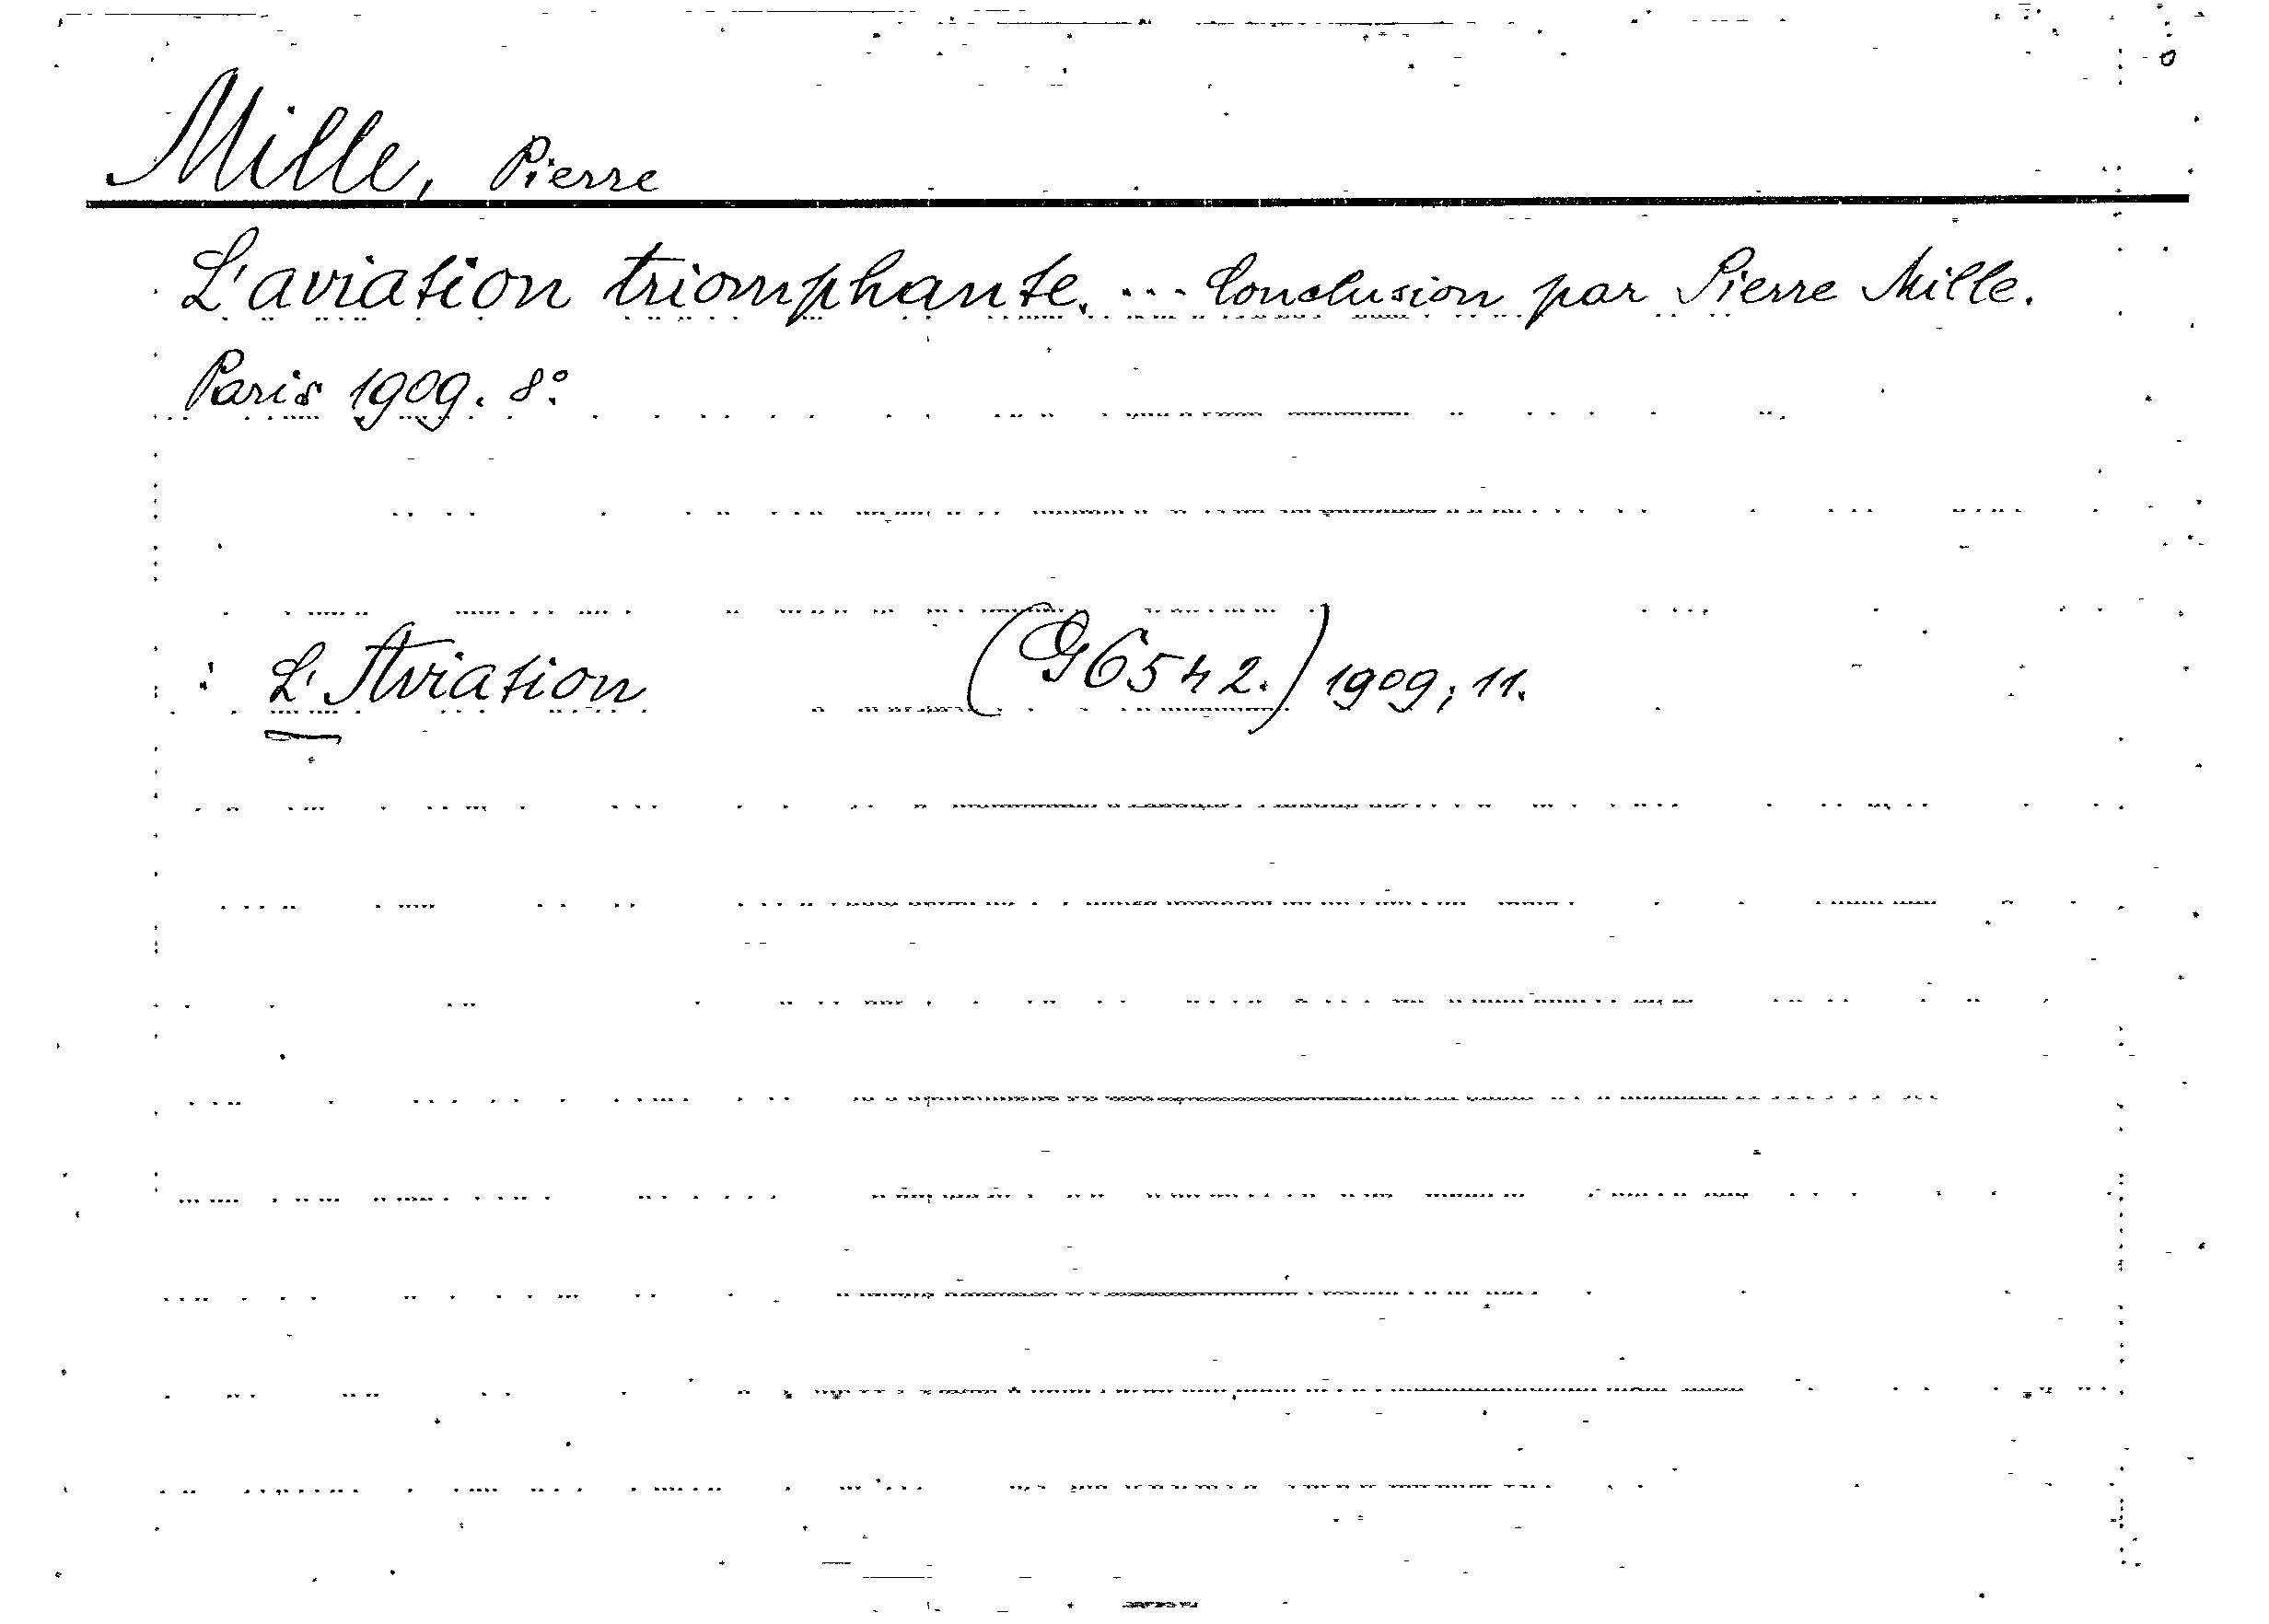 Mille, Pierre
L'aviation triomphante. ... Conclusion par Pierre Mille.
Paris 1909. 8°.
: L'Aviation (G6542.) 1909; 11.